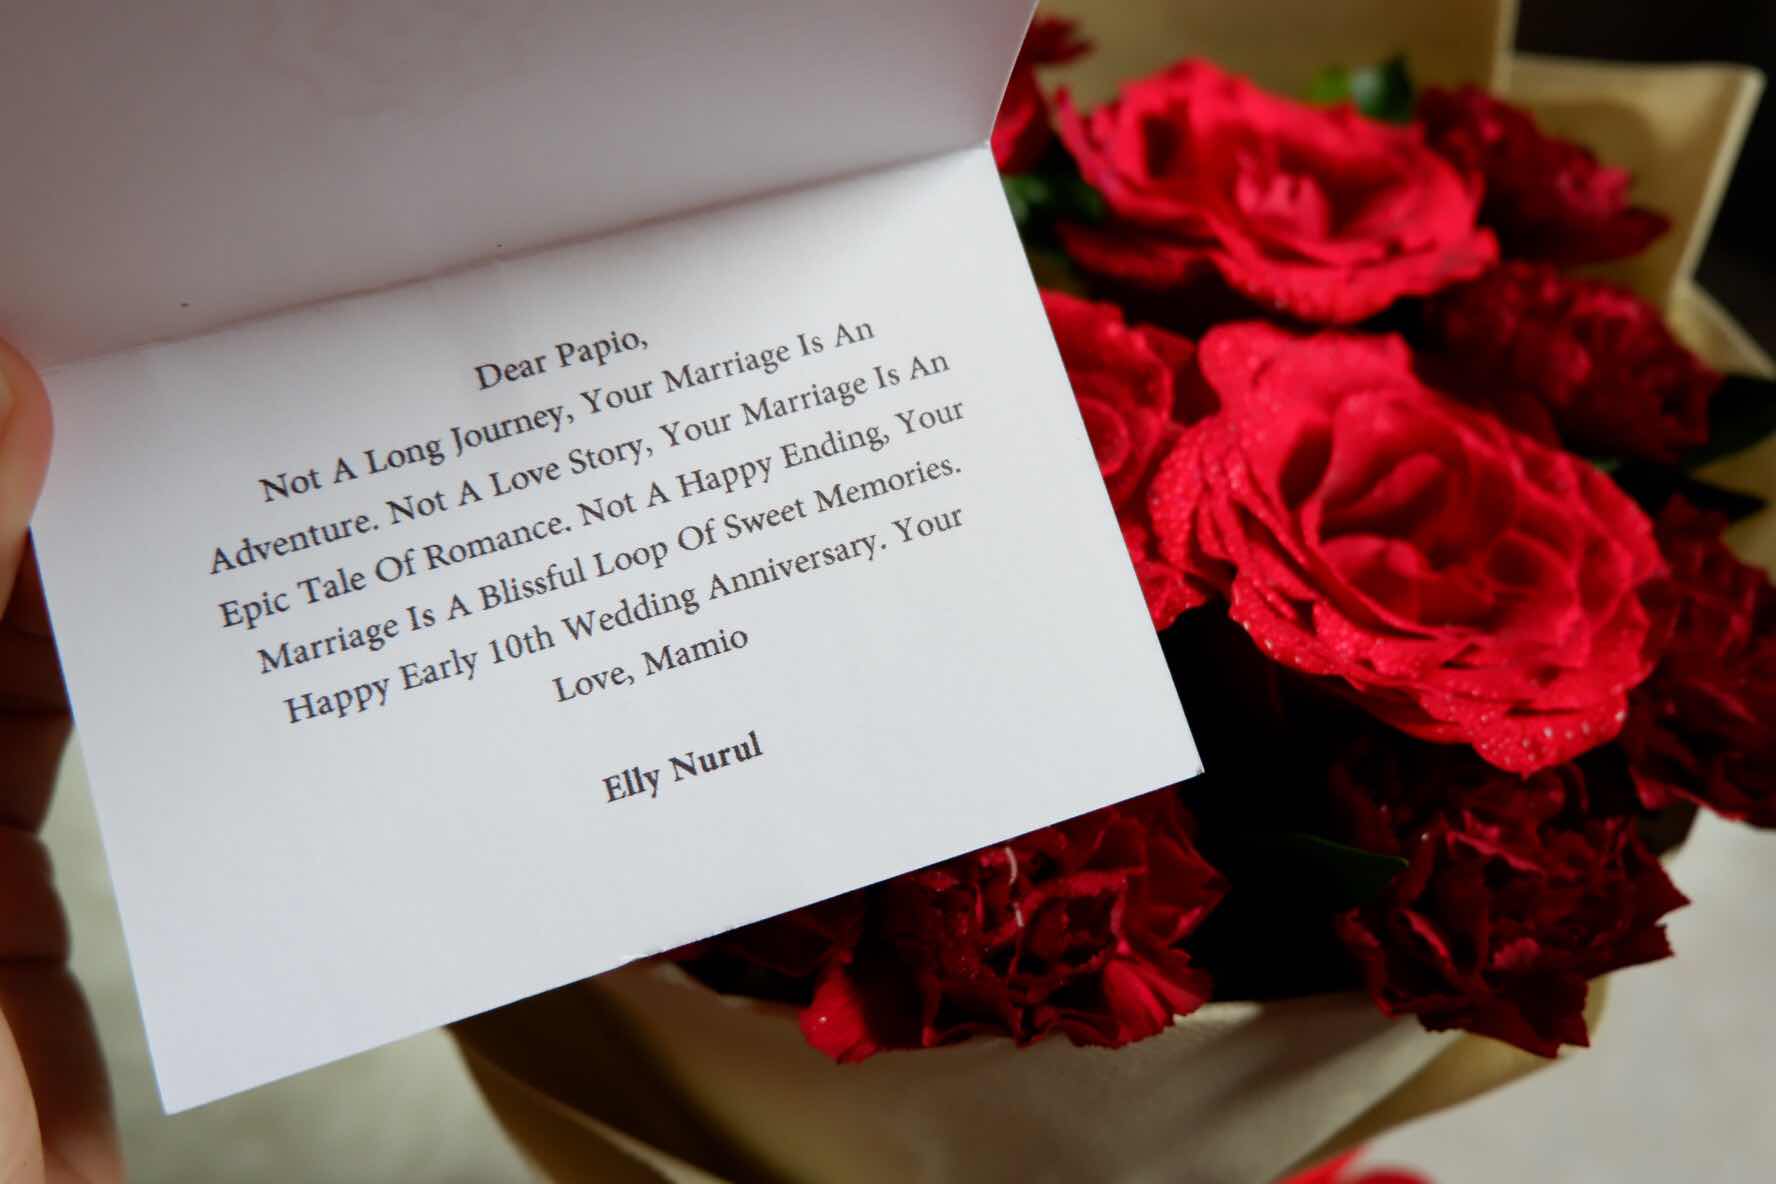 Dear Papio,
Not A Long Journey, Your Marriage Is An
Adventure. Not A Love Story, Your Marriage Is An
Epic Tale Of Romance. Not A Happy Ending, Your
Marriage Is A Blissful Loop Of Sweet Memories.
Happy Early 10th Wedding Anniversary. Your
Love, Mamio
Elly Nurul